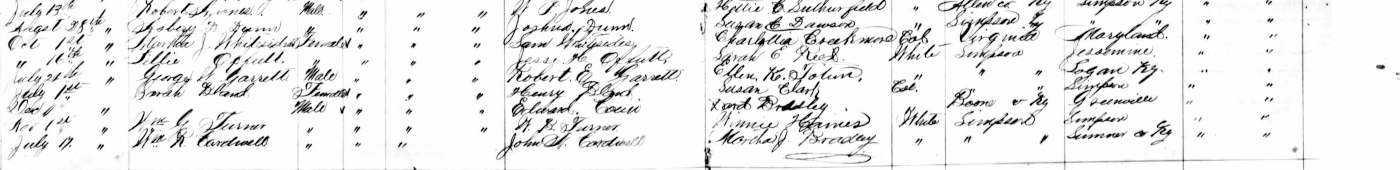 July 13th Robert Jones Male " " " Y P Jones Hettie C Sutherfield " Allen co Ky Simpson Ky " "
August 28th " Robert D Dunn " " " " Joshua Dunn Susan C Dawson " Simpson Ky " " "
Oct 1st " Martha J Whitesides Female " " " Sam Whitesides Charlotta Creekmore Col Virginia Maryland " "
" 16th " Lillie Offutt " " " " Jesse H Offutt Sarah E Reed White Simpson Jessamine " "
July 21st " George W Garrett Male " " " Robert E Garrett Ellen K " " Logan Ky " "
July 1st " Sarah Bland Female " " " Henry Bland Susan Clark Col. Simpson " "
Dec " " Male " " " Edward Bradley Boone co Ky Greenville " "
Nov 1st " Wm G Turner " " " " Turner Minnie Haines White Simpson Simpson " "
July 17 " Wm R Cardwell " " " John W Cardwell Martha J Bradley " " " Sumner co Ky " "